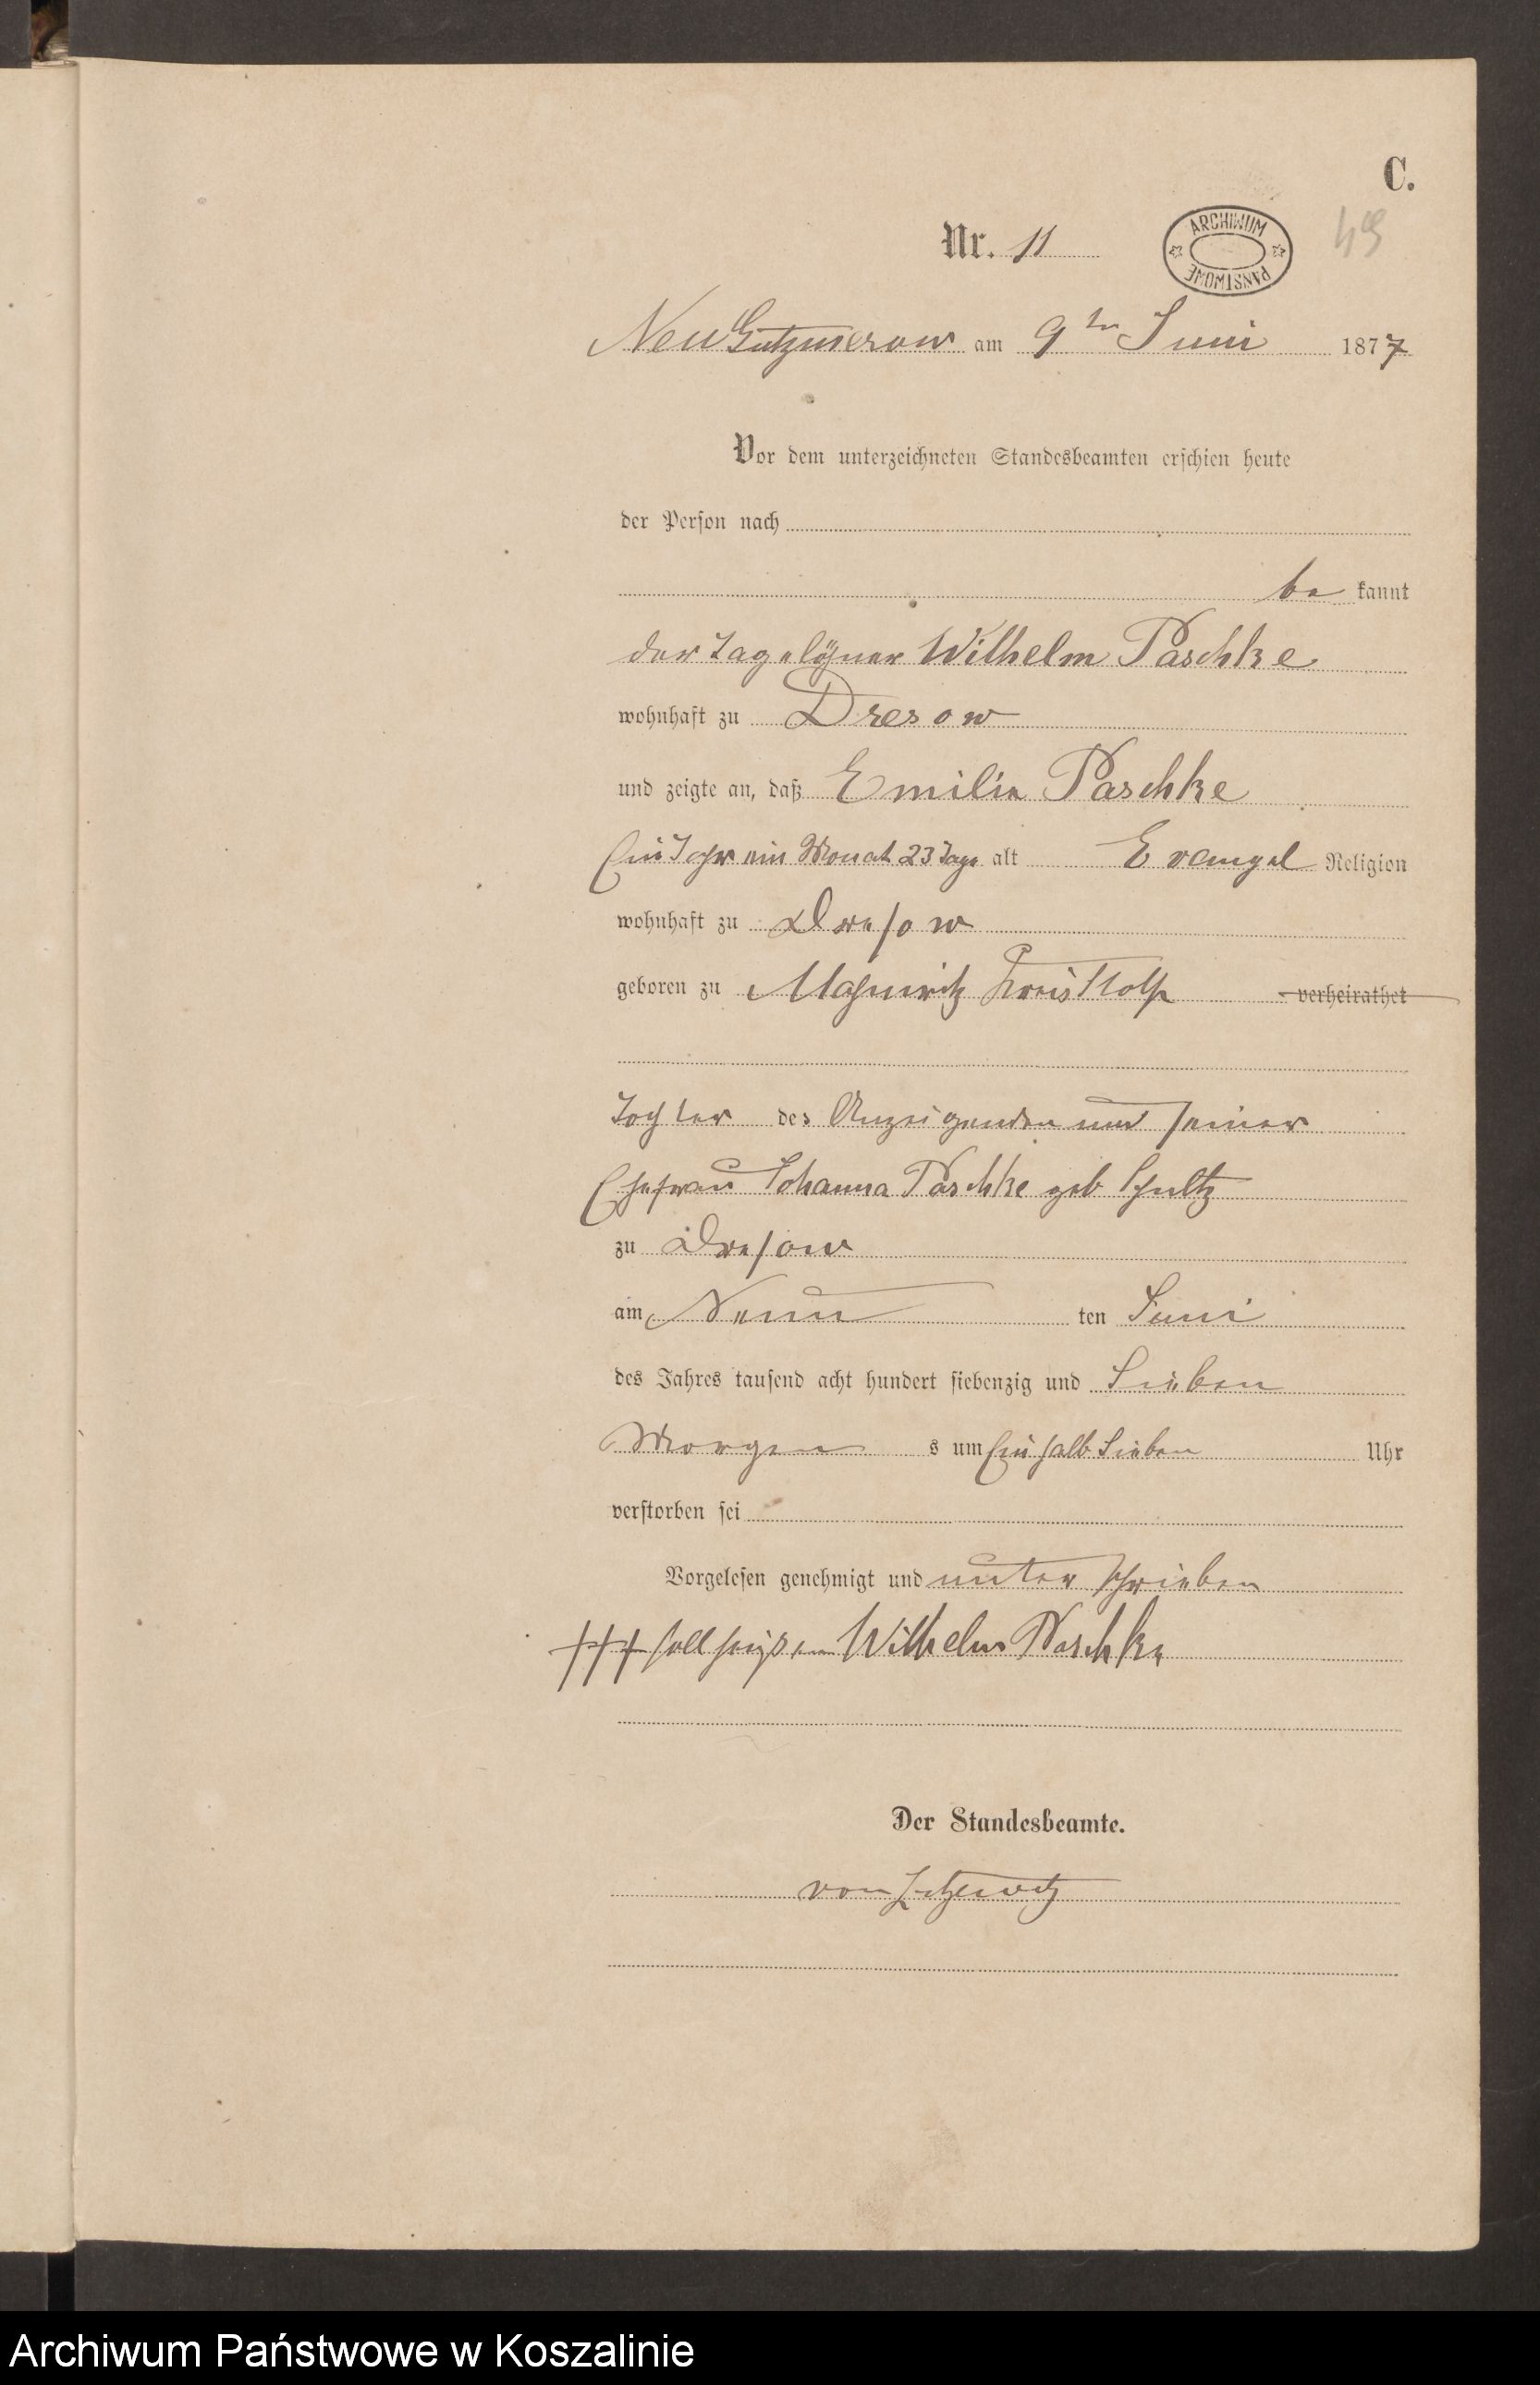 C.
Nr. 11
ARCHIWUM PAŃSTWOWE
49
Neu Gutzmerow am 9ten Juni 1877
Vor dem unterzeichneten Standesbeamten erschien heute
der Person nach
be kannt
der Tagelöhner Wilhelm Paschke
wohnhaft zu Dresow
und zeigte an, daß Emilie Paschke
Ein Jahr ein Monat 23 Tage alt Evangel Religion
wohnhaft zu Dresow
geboren zu Mahnwitz Kreis Stolp verheirathet
Tochter des Anzeigenden und seiner
Ehefrau Johanna Paschke geb Schultz
zu Dresow
am Neun ten Juni
des Jahres tausend acht hundert siebenzig und Sieben
Morgen s um Ein halb Sieben Uhr
verstorben sei
Vorgelesen genehmigt und unterschrieben
+++ soll heißen Wilhelm Paschke
Der Standesbeamte.
von Zitzewitz
Archiwum Państwowe w Koszalinie